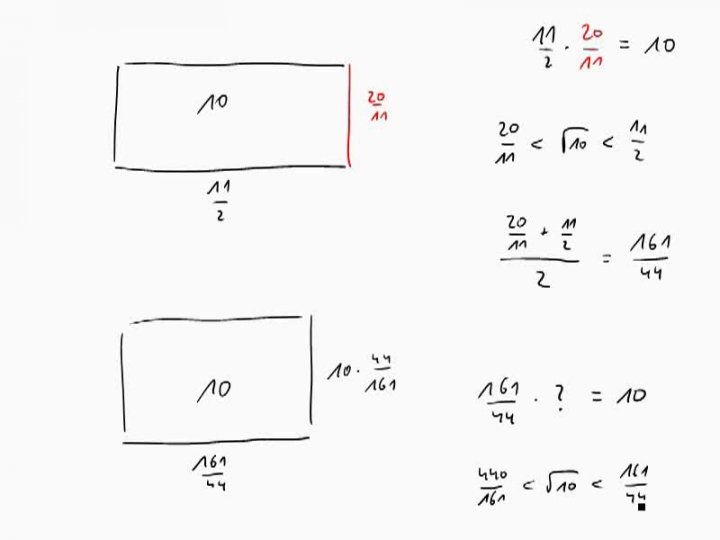 11/2 · 20/11 = 10
10
20/11
11/2
20/11 < √10 < 11/2
(20/11 + 11/2)/2 = 161/44
10
10 · 44/161
161/44
161/44 · ? = 10
440/161 < √10 < 161/44